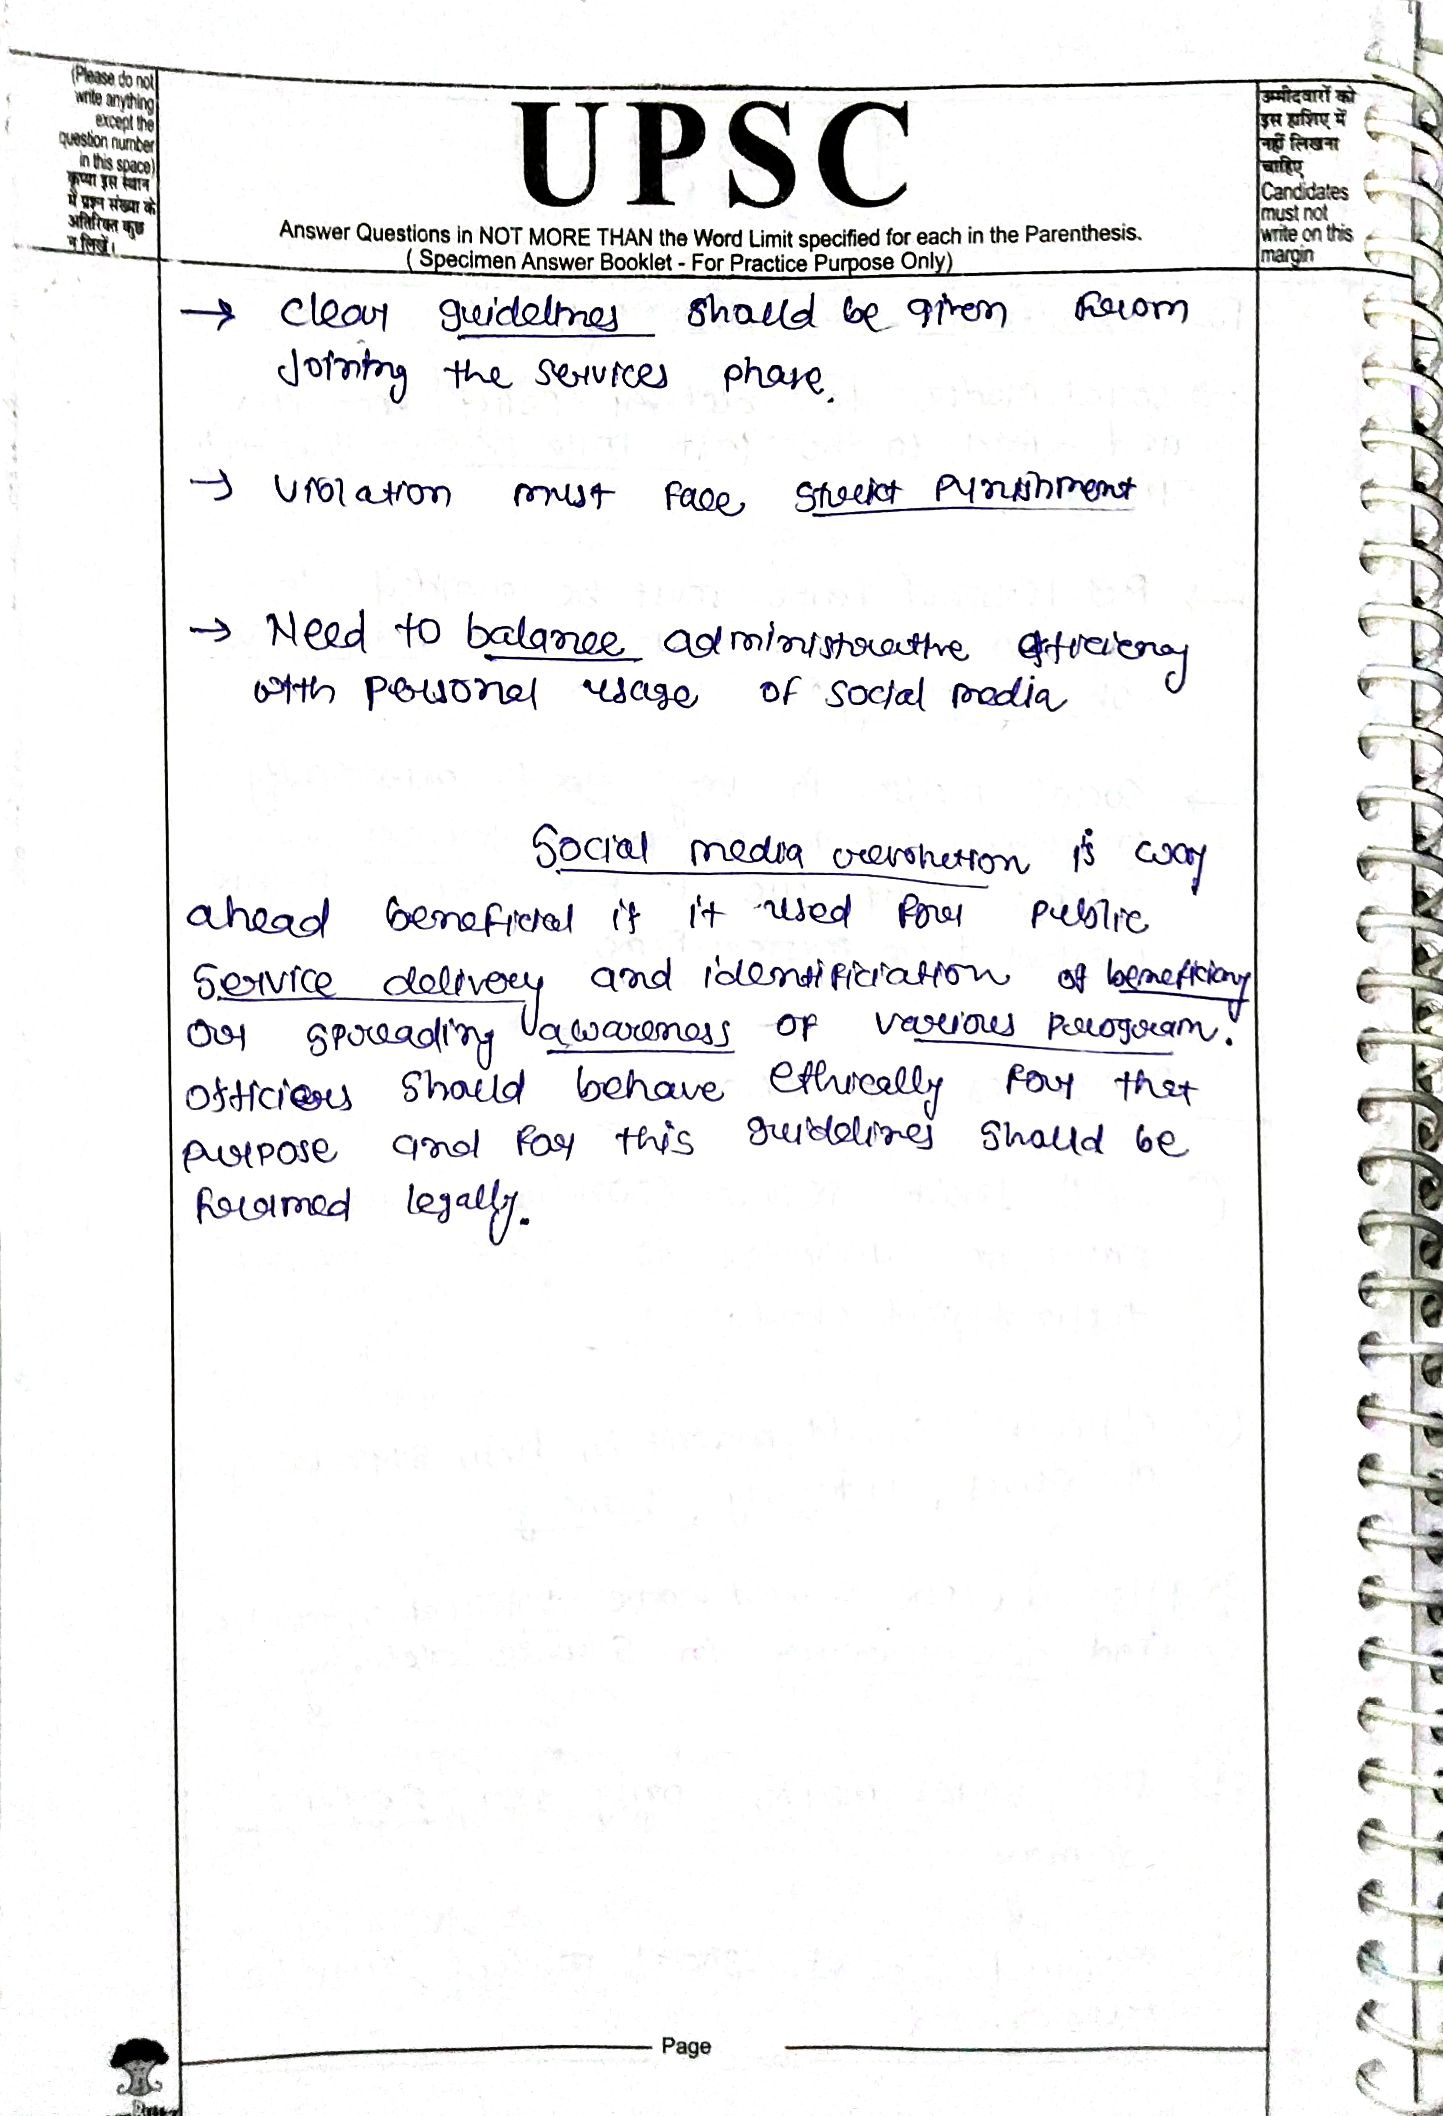 (Please do not
write anything
except the
question number
in this space)
कृप्या इस स्थान
में प्रश्न संख्या के
अतिरिक्त कुछ
न लिखें।
UPSC
Answer Questions in NOT MORE THAN the Word Limit specified for each in the Parenthesis.
( Specimen Answer Booklet - For Practice Purpose Only)
उम्मीदवारों को
इस हाशिए में
नहीं लिखना
चाहिए
Candidates
must not
write on this
margin
→ Clear guidelines should be given from
Joining the services phase.
→ Violation must face strict punishment
→ Need to balance administrative efficiency
with personal usage of social media
Social media revolution is way
ahead beneficial if it used for public
service delivery and identificiation of beneficiary
or spreading awareness of various program.
Officiers should behave ethically for that
purpose and for this guidelines should be
framed legally.
Page